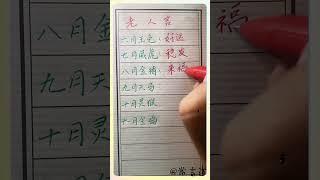 老人言
六月玉兔：好运
七月威虎：稳发
八月金猪：来福
九月天马：
十月灵猴
十月金狗
八月金
九月天
十月灵
福
@常言